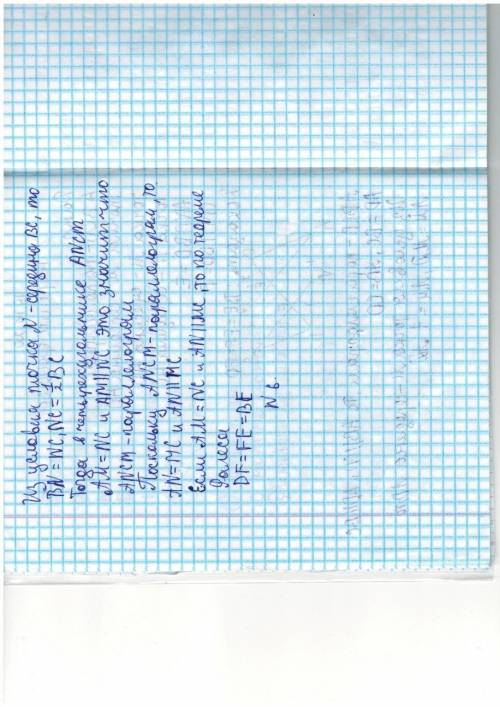 Из условия точка N - середина BC, то
BN = NC, NC = 1/2 BC
Тогда в четырехугольнике ANCM
AM = NC и AM || NC это значит что
ANCM - параллелограм
Поскольку ANCM - параллелограм, то
AN = MC и AN || MC
Если AM = NC и AN || MC, то по теореме
Фалеса
DF = FE = BE
№6